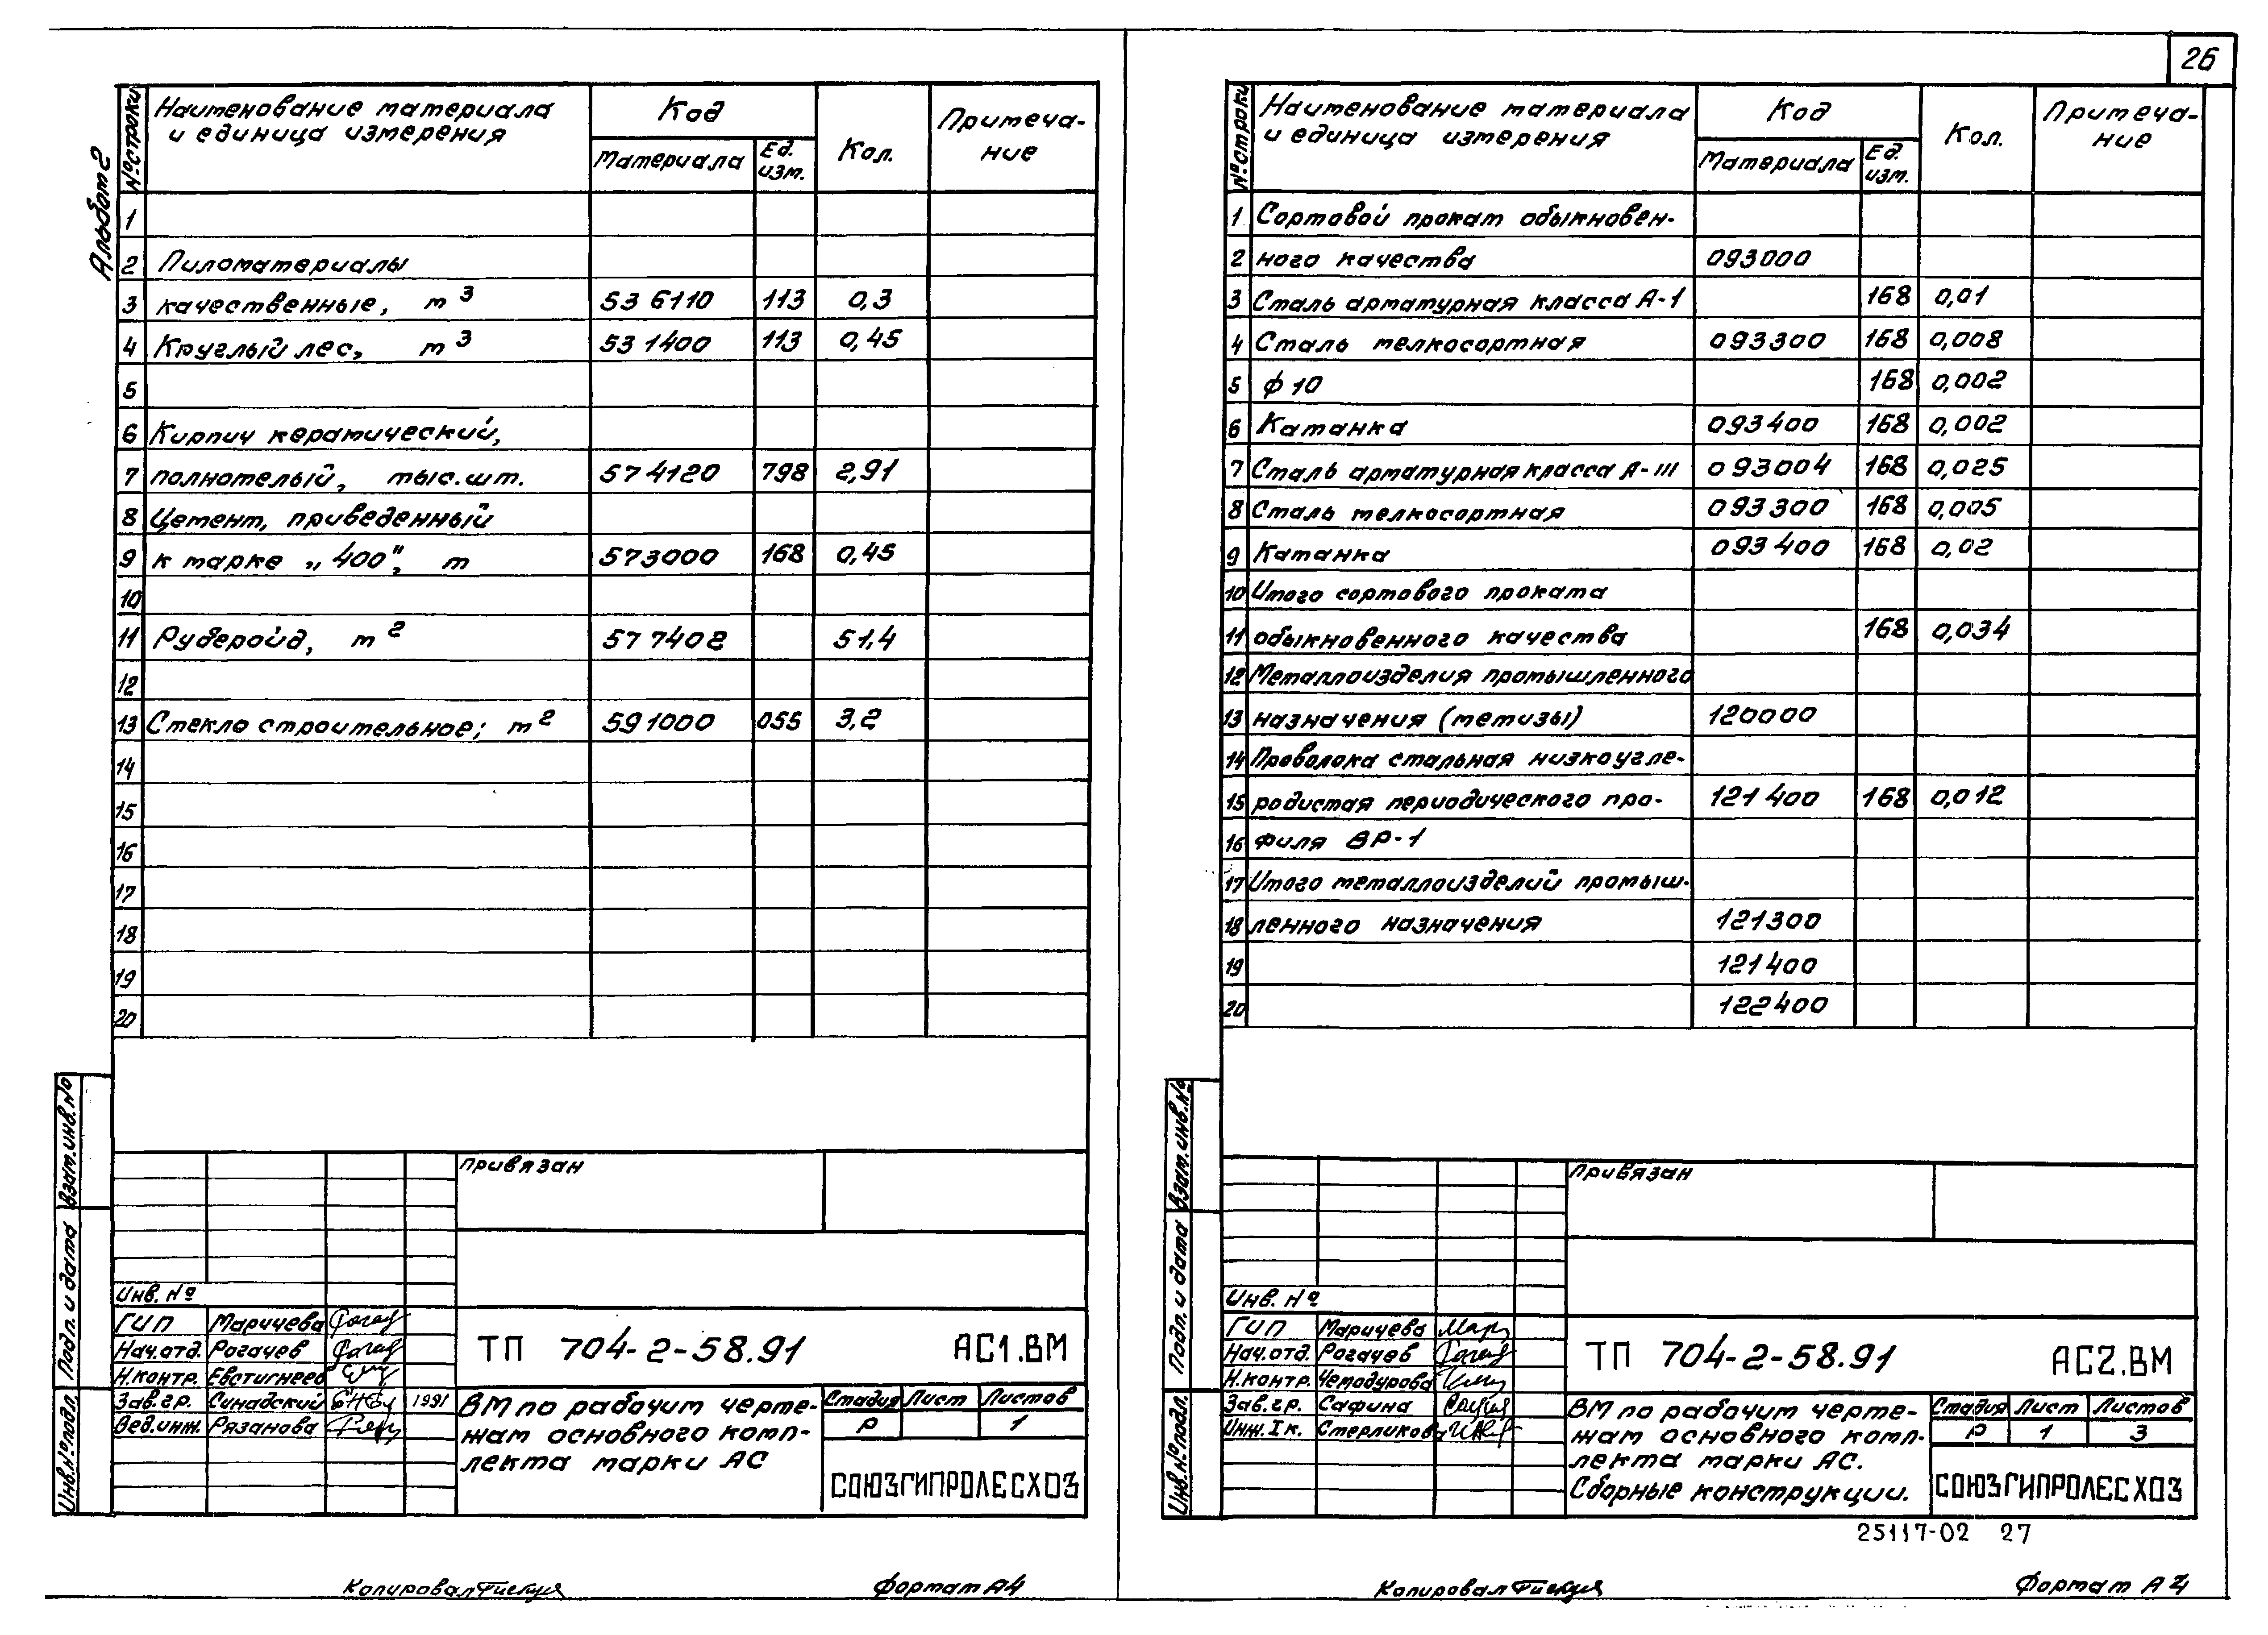 26
Альбом 2
№ строки Наименование материала и единица измерения Код Кол. Примеча-
ние
Материала Ед. изм.
1
2 Пиломатериалы
3 качественные, м3 53 6110 113 0,3
4 Круглый лес, м3 53 1400 113 0,45
5
6 Кирпич керамический,
7 полнотелый, тыс.шт. 57 4120 798 2,91
8 Цемент, приведенный
9 к марке „400", т 573000 168 0,45
10
11 Рубероид, м2 57 7402 51,4
12
13 Стекло строительное; м2 591000 055 3,2
14
15
16
17
18
19
20
Взам.инв.№
Подп. и дата
Инв.№подл.
Привязан
Инв. №
ГИП Маричева
Нач.отд. Рогачев
Н.контр. Евстигнеев
Зав.гр. Синадский 1991
Вед.инж. Рязанова
ТП 704-2-58.91 АС1.ВМ
ВМ по рабочим черте-
жам основного комп-
лекта марки АС
Стадия Лист Листов
Р 1
СОЮЗГИПРОЛЕСХОЗ
Копировал
Формат А4
№ строки Наименование материала и единица измерения Код Кол. Примеча-
ние
Материала Ед. изм.
1 Сортовой прокат обыкновен-
2 ного качества 093000
3 Сталь арматурная класса А-1 168 0,01
4 Сталь мелкосортная 093300 168 0,008
5 ф 10 168 0,002
6 Катанка 093400 168 0,002
7 Сталь арматурная класса А-III 093004 168 0,025
8 Сталь мелкосортная 093300 168 0,005
9 Катанка 093400 168 0,02
10 Итого сортового проката
11 обыкновенного качества 168 0,034
12 Металлоизделия промышленного
13 назначения (метизы) 120000
14 Проволока стальная низкоугле-
15 родистая периодического про- 121400 168 0,012
16 филя ВР-1
17 Итого металлоизделий промыш-
18 ленного назначения 121300
19 121400
20 122400
Взам.инв.№
Подп. и дата
Инв.№подл.
Привязан
Инв. №
ГИП Маричева
Нач.отд. Рогачев
Н.контр. Чемодурова
Зав.гр. Сафина
Инж.Iк. Стерликова
ТП 704-2-58.91 АС2.ВМ
ВМ по рабочим черте-
жам основного комп-
лекта марки АС.
Сборные конструкции.
Стадия Лист Листов
Р 1 3
СОЮЗГИПРОЛЕСХОЗ
25117-02 27
Копировал
Формат А4